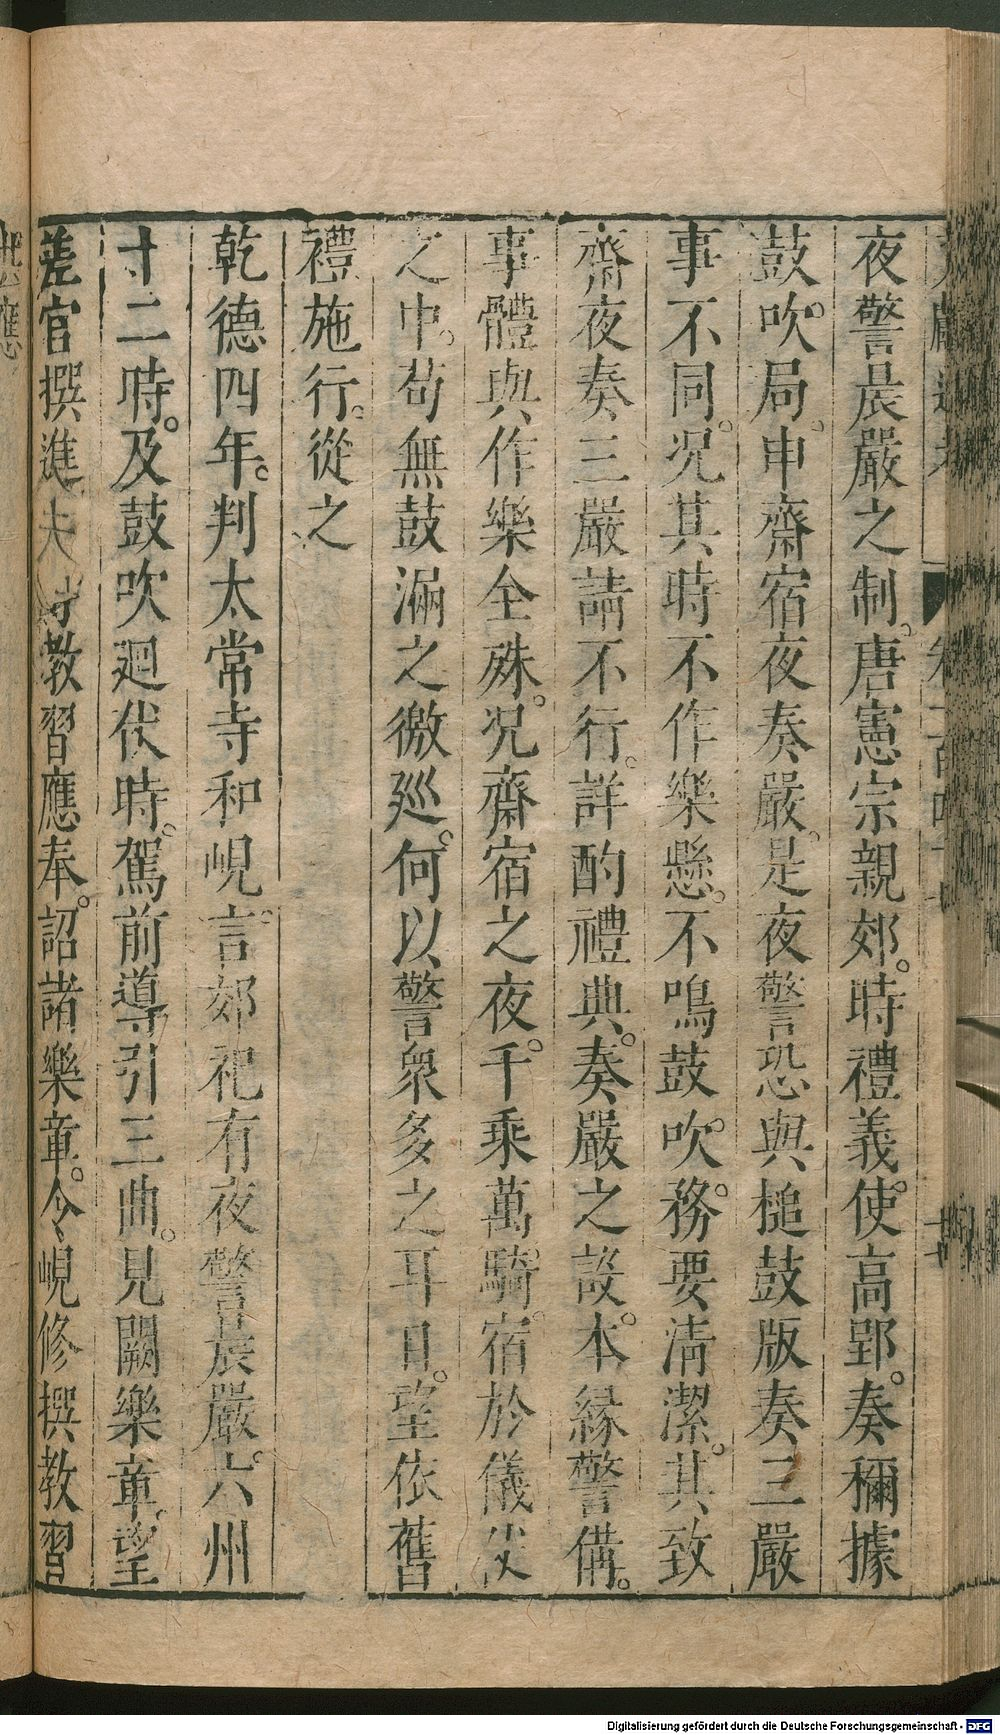 夜警晨嚴之制。唐憲宗親郊。時禮義使。高郢。奏稱據
鼓吹。局。申齋宿夜奏嚴。是夜警恐與搥鼓版奏三嚴
事不同。况其時不作樂懸。不鳴鼓吹。務要淸潔。其致
齋夜奏三嚴請不行。詳酌禮典。奏嚴之設。本縁警備。
事體與作樂全殊。况齋宿之夜。千乘萬騎。宿於儀仗
之中。苟無鼓漏之徼廵。何以警衆多之耳目。望依舊
禮施行。從之
乾德四年。判太常寺和峴言。郊祀有夜警晨嚴。六州
十二時。及鼓吹廻仗時。駕前導引三曲。見闕樂章。望
差官撰進 教習應奉。詔諸樂章。令峴修撰教習
Digitalisierung gefördert durch die Deutsche Forschungsgemeinschaft - DFG